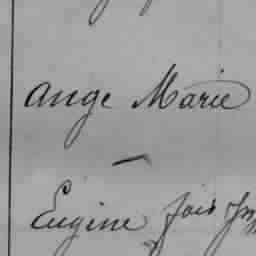 Ange Marie
Eugène fois